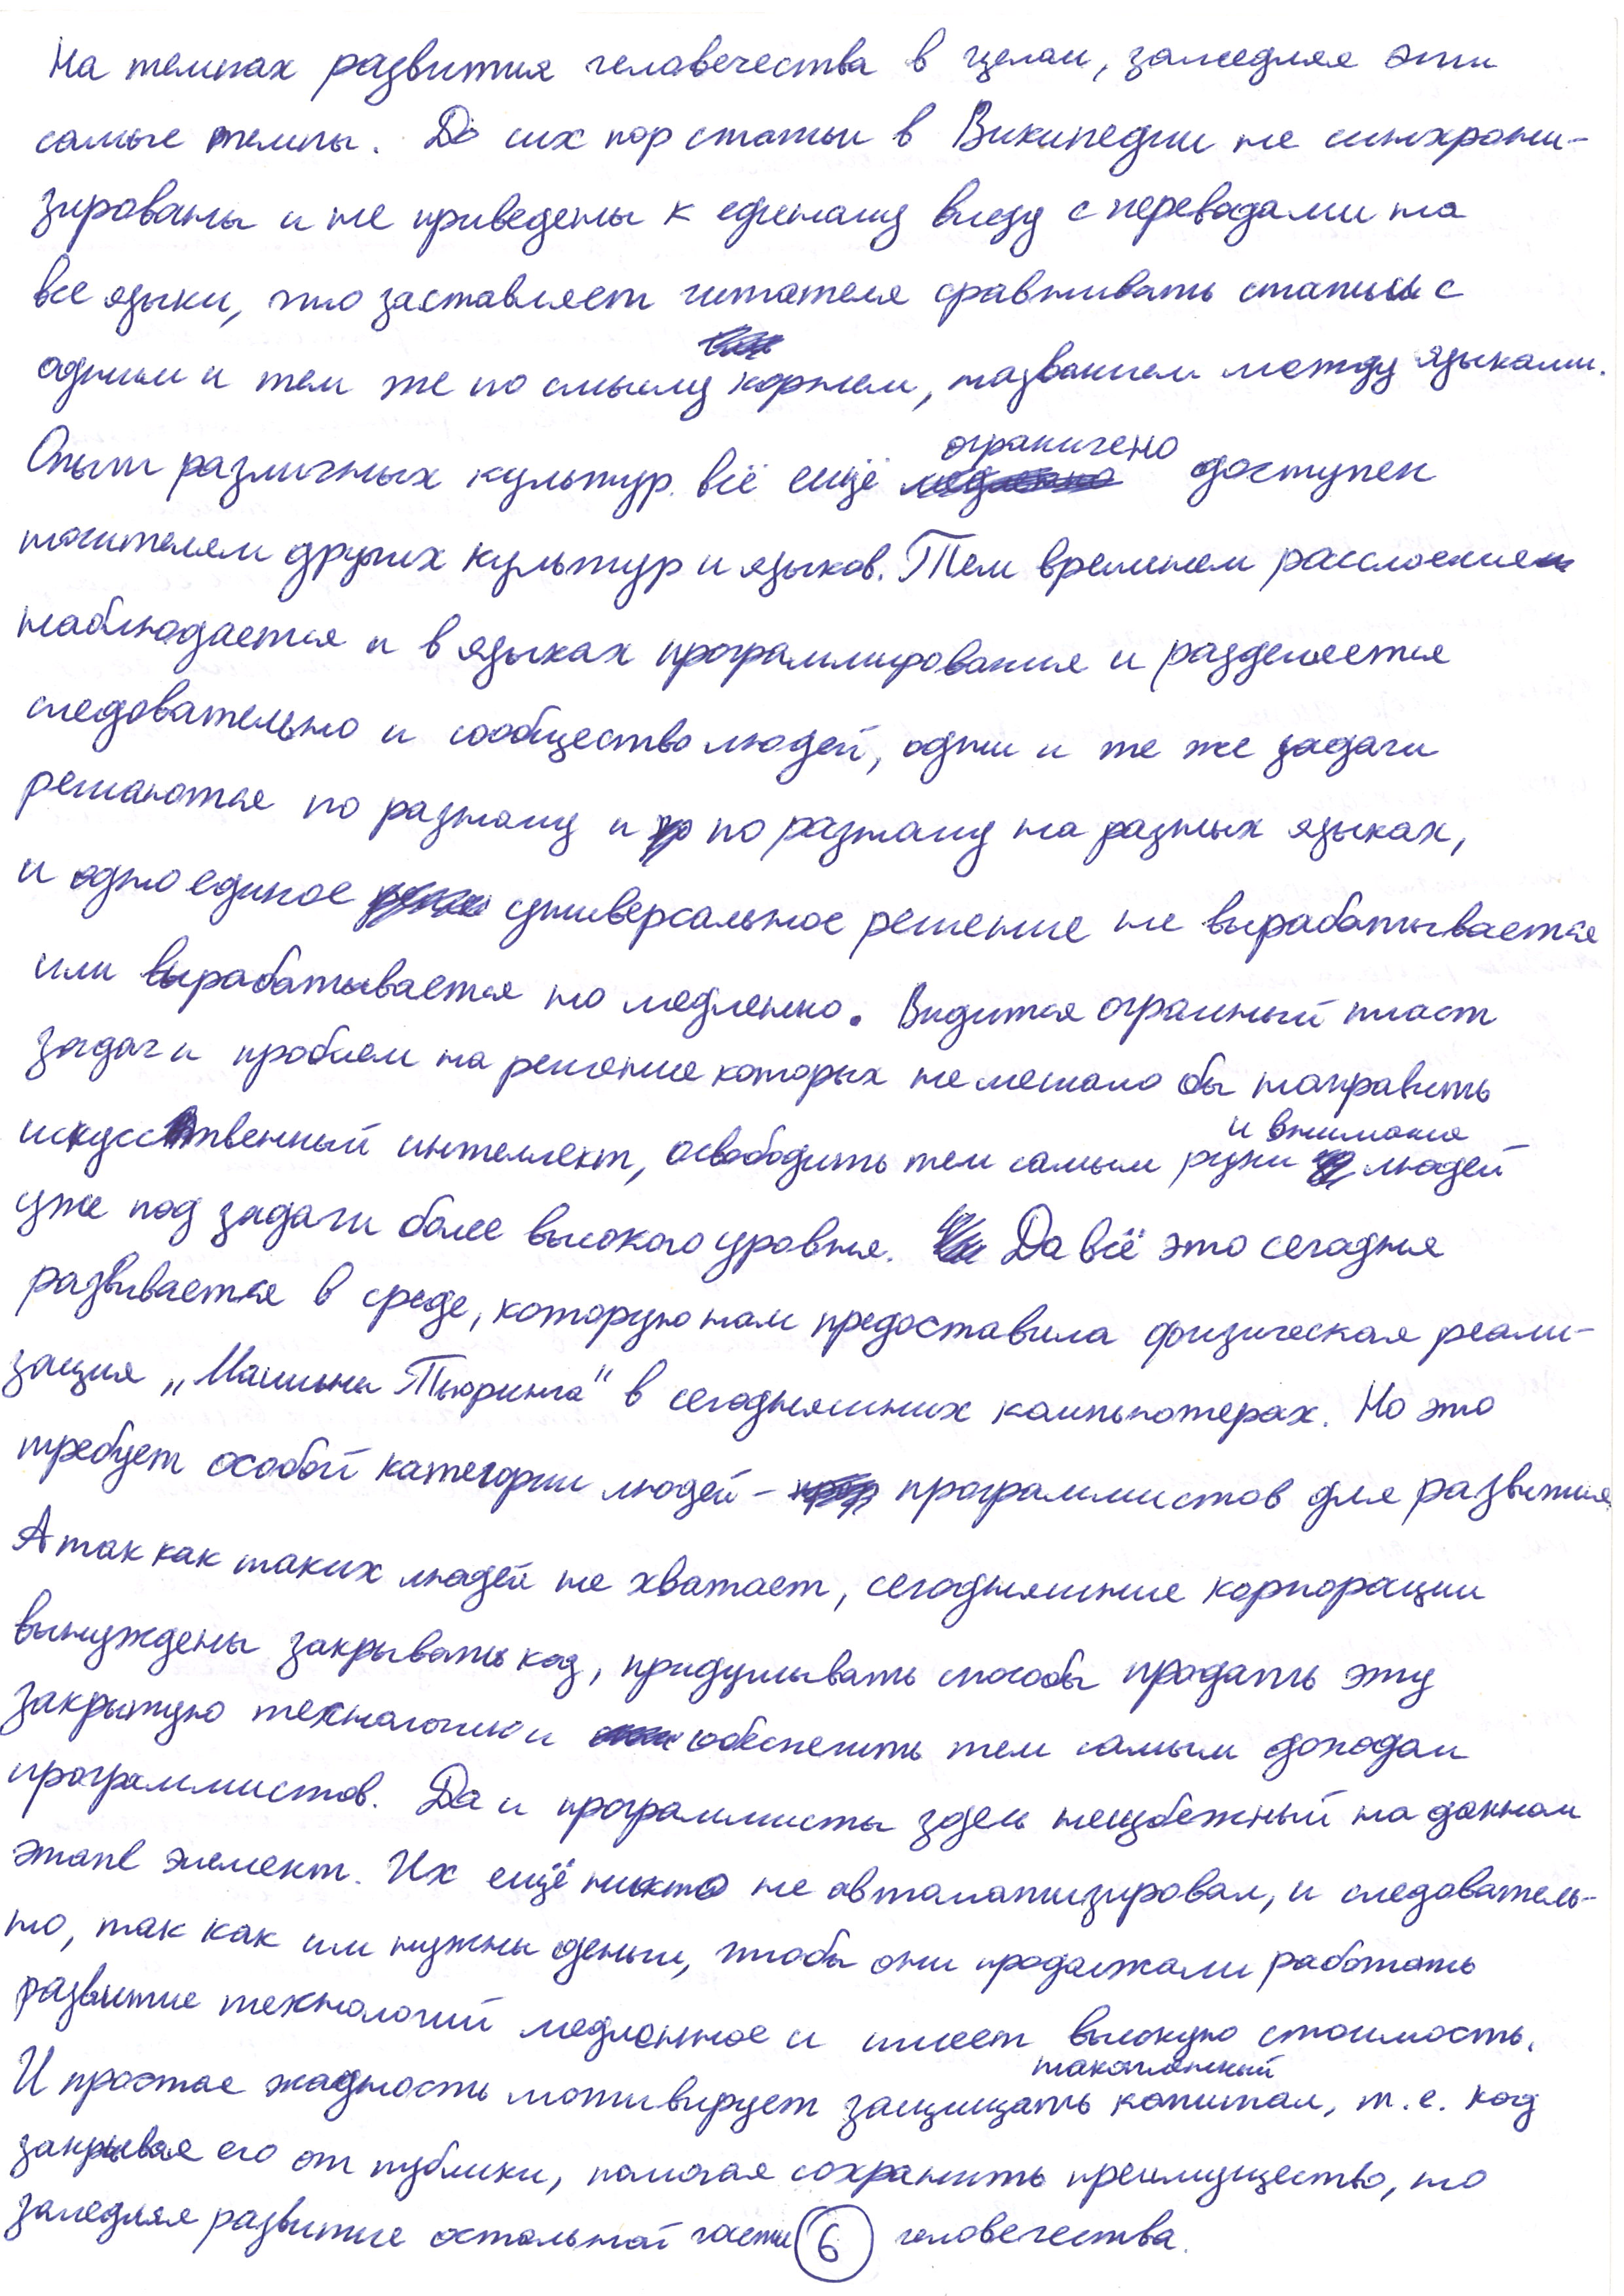 на темпах развития человечества в целом, замедляя эти
самые темпы. До сих пор статьи в Википедии не синхрони-
зированы и не приведены к единому виду с переводами на
все языки, что заставляет читателя сравнивать статьи с
одним и тем же по смыслу корнем, названием между языками.
ограничено
Опыт различных культур всё ещё доступен
носителям других культур и языков. Тем временем расслоение
наблюдается и в языках программирования и разделяется
следовательно и сообщество людей, одни и те же задачи
решаются по разному и по разному на разных языках,
и одно единое универсальное решение не вырабатывается
или вырабатывается но медленно. Видится огромный пласт
задач и проблем на решение которых не мешало бы направить
и внимание
искусственный интеллект, освободить тем самым руки людей
уже под задачи более высокого уровня. Да всё это сегодня
развивается в среде, которую нам предоставила физическая реали-
зация „Машины Тьюринга" в сегодняшних компьютерах. Но это
требует особой категории людей - программистов для развития
А так как таких людей не хватает, сегодняшние корпорации
вынуждены закрывать код, придумывать способы продать эту
закрытую технологию и обеспечить тем самым доходом
программистов. Да и программисты здесь неизбежный на данном
этапе элемент. Их ещё никто не автоматизировал, и следователь-
но, так как им нужны деньги, чтобы они продолжали работать
развитие технологий медленное и имеет высокую стоимость.
накопленный
И простая жадность мотивирует защищать капитал, т.е. код
закрывая его от публики, помогая сохранить преимущество, но
замедляя развитие остальной части человечества.
6